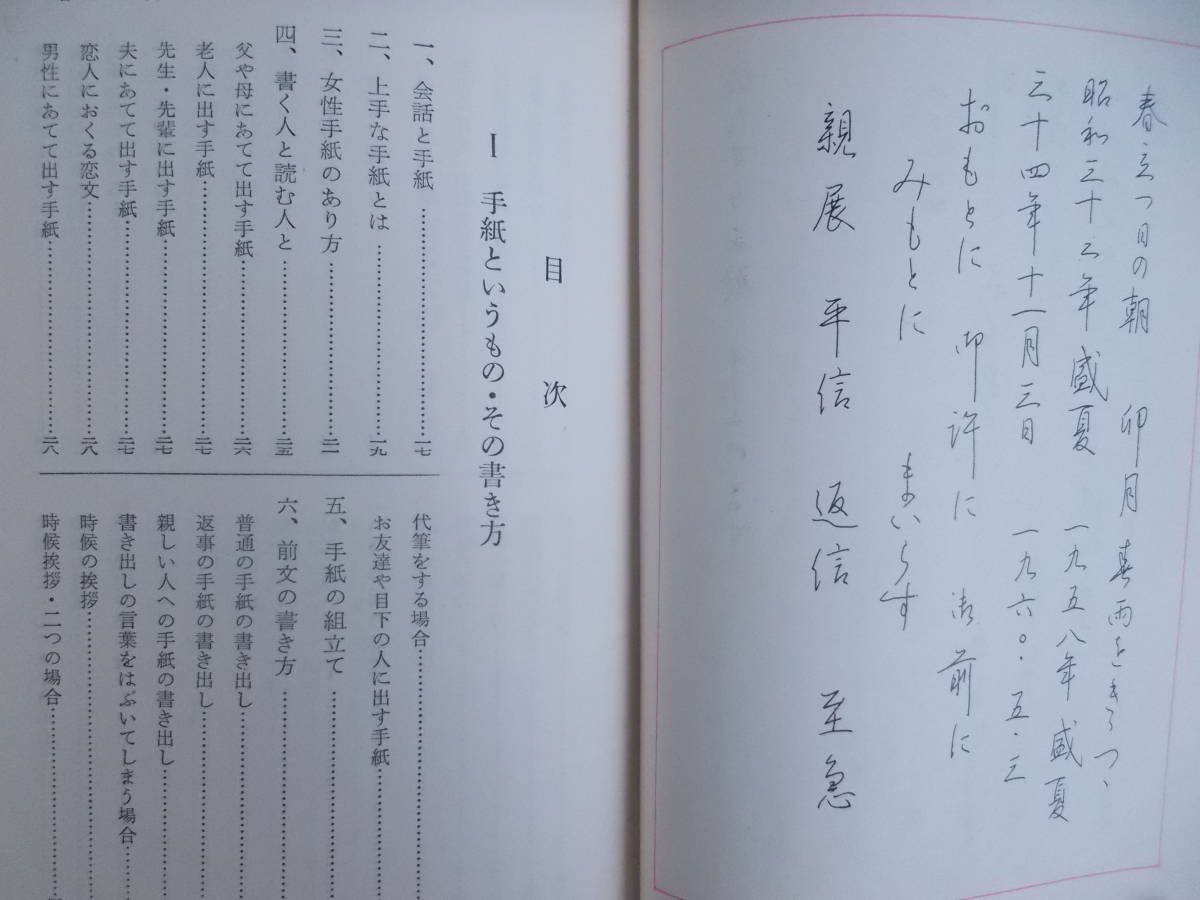 春立つ日の朝　卯月　春雨をきゝつゝ
昭和三十三年盛夏　一九五八年盛夏
三十四年十一月三日　一九六〇・五・三
おもとに　御許に　御前に
みもとに　まいらす
親展　平信　返信　至急
目次
I　手紙というもの・その書き方
一、会話と手紙……一七
二、上手な手紙とは……一九
三、女性手紙のあり方……二一
四、書く人と読む人と……二五
父や母にあてて出す手紙……二六
老人に出す手紙……二七
先生・先輩に出す手紙……二七
夫にあてて出す手紙……二七
恋人におくる恋文……二八
男性にあてて出す手紙……二八
代筆をする場合……
お友達や目下の人に出す手紙……
五、手紙の組立て……
六、前文の書き方……
普通の手紙の書き出し……
返事の手紙の書き出し……
親しい人への手紙の書き出し……
書き出しの言葉をはぶいてしまう場合……
時候の挨拶……
時候挨拶・二つの場合……